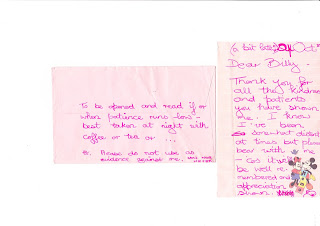 To be opened and read if or
when patience runs low -
best taken at night with
coffee or tea or ...
Please do not use as
evidence against me.
(a bit late) Oct
Dear Billy -
Thank you for
all the kindness
and patients
you have shown
me. I know
I've been
so somewhat
at times but please
bear with me
- cos it will
be well re-
membered and
appreciation
shown.